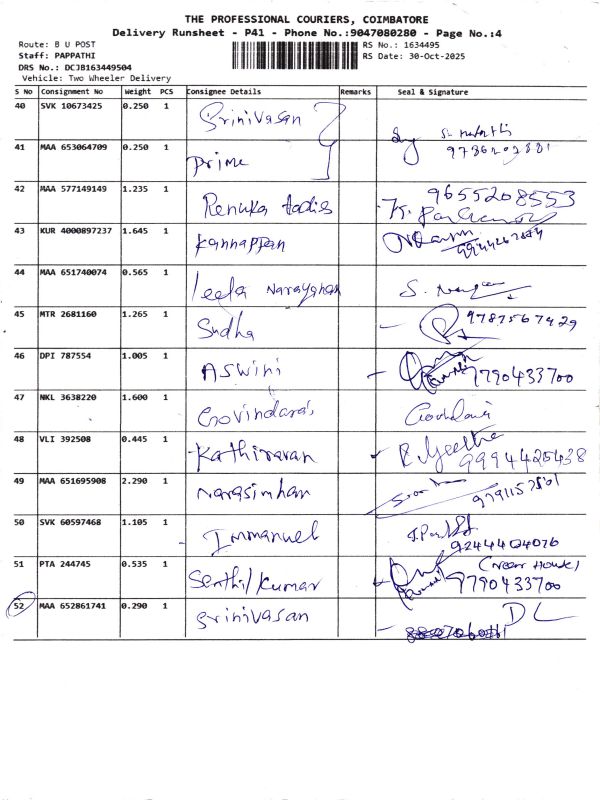 THE PROFESSIONAL COURIERS, COIMBATORE
Delivery Runsheet - P41 - Phone No.:9047080280 - Page No.:4
Route: B U POST
RS No.: 1634495
Staff: PAPPATHI
RS Date: 30-Oct-2025
DRS No.: DCJB163449504
Vehicle: Two Wheeler Delivery
S No Consignment No Weight PCS Consignee Details Remarks Seal & Signature
40 SVK 10673425 0.250 1 Srinivasan
41 MAA 653064709 0.250 1 Prime
42 MAA 577149149 1.235 1 Renuka 9655208553
43 KUR 4000897237 1.645 1 Kannappan
44 MAA 651740074 0.565 1 Leela Narayanan
45 MTR 2681160 1.265 1 Sudha 9787567429
46 DPI 787554 1.005 1 ASWini 9790433700
47 NKL 3638220 1.600 1 Govindaraj
48 VLI 392508 0.445 1 Kathiravan R. Geetha
9994425438
49 MAA 651695908 2.290 1 Narasimhan
50 SVK 60597468 1.105 1 Immanuel
9244404076
51 PTA 244745 0.535 1 Senthil Kumar
9790433700
52 MAA 652861741 0.290 1 Srinivasan DL